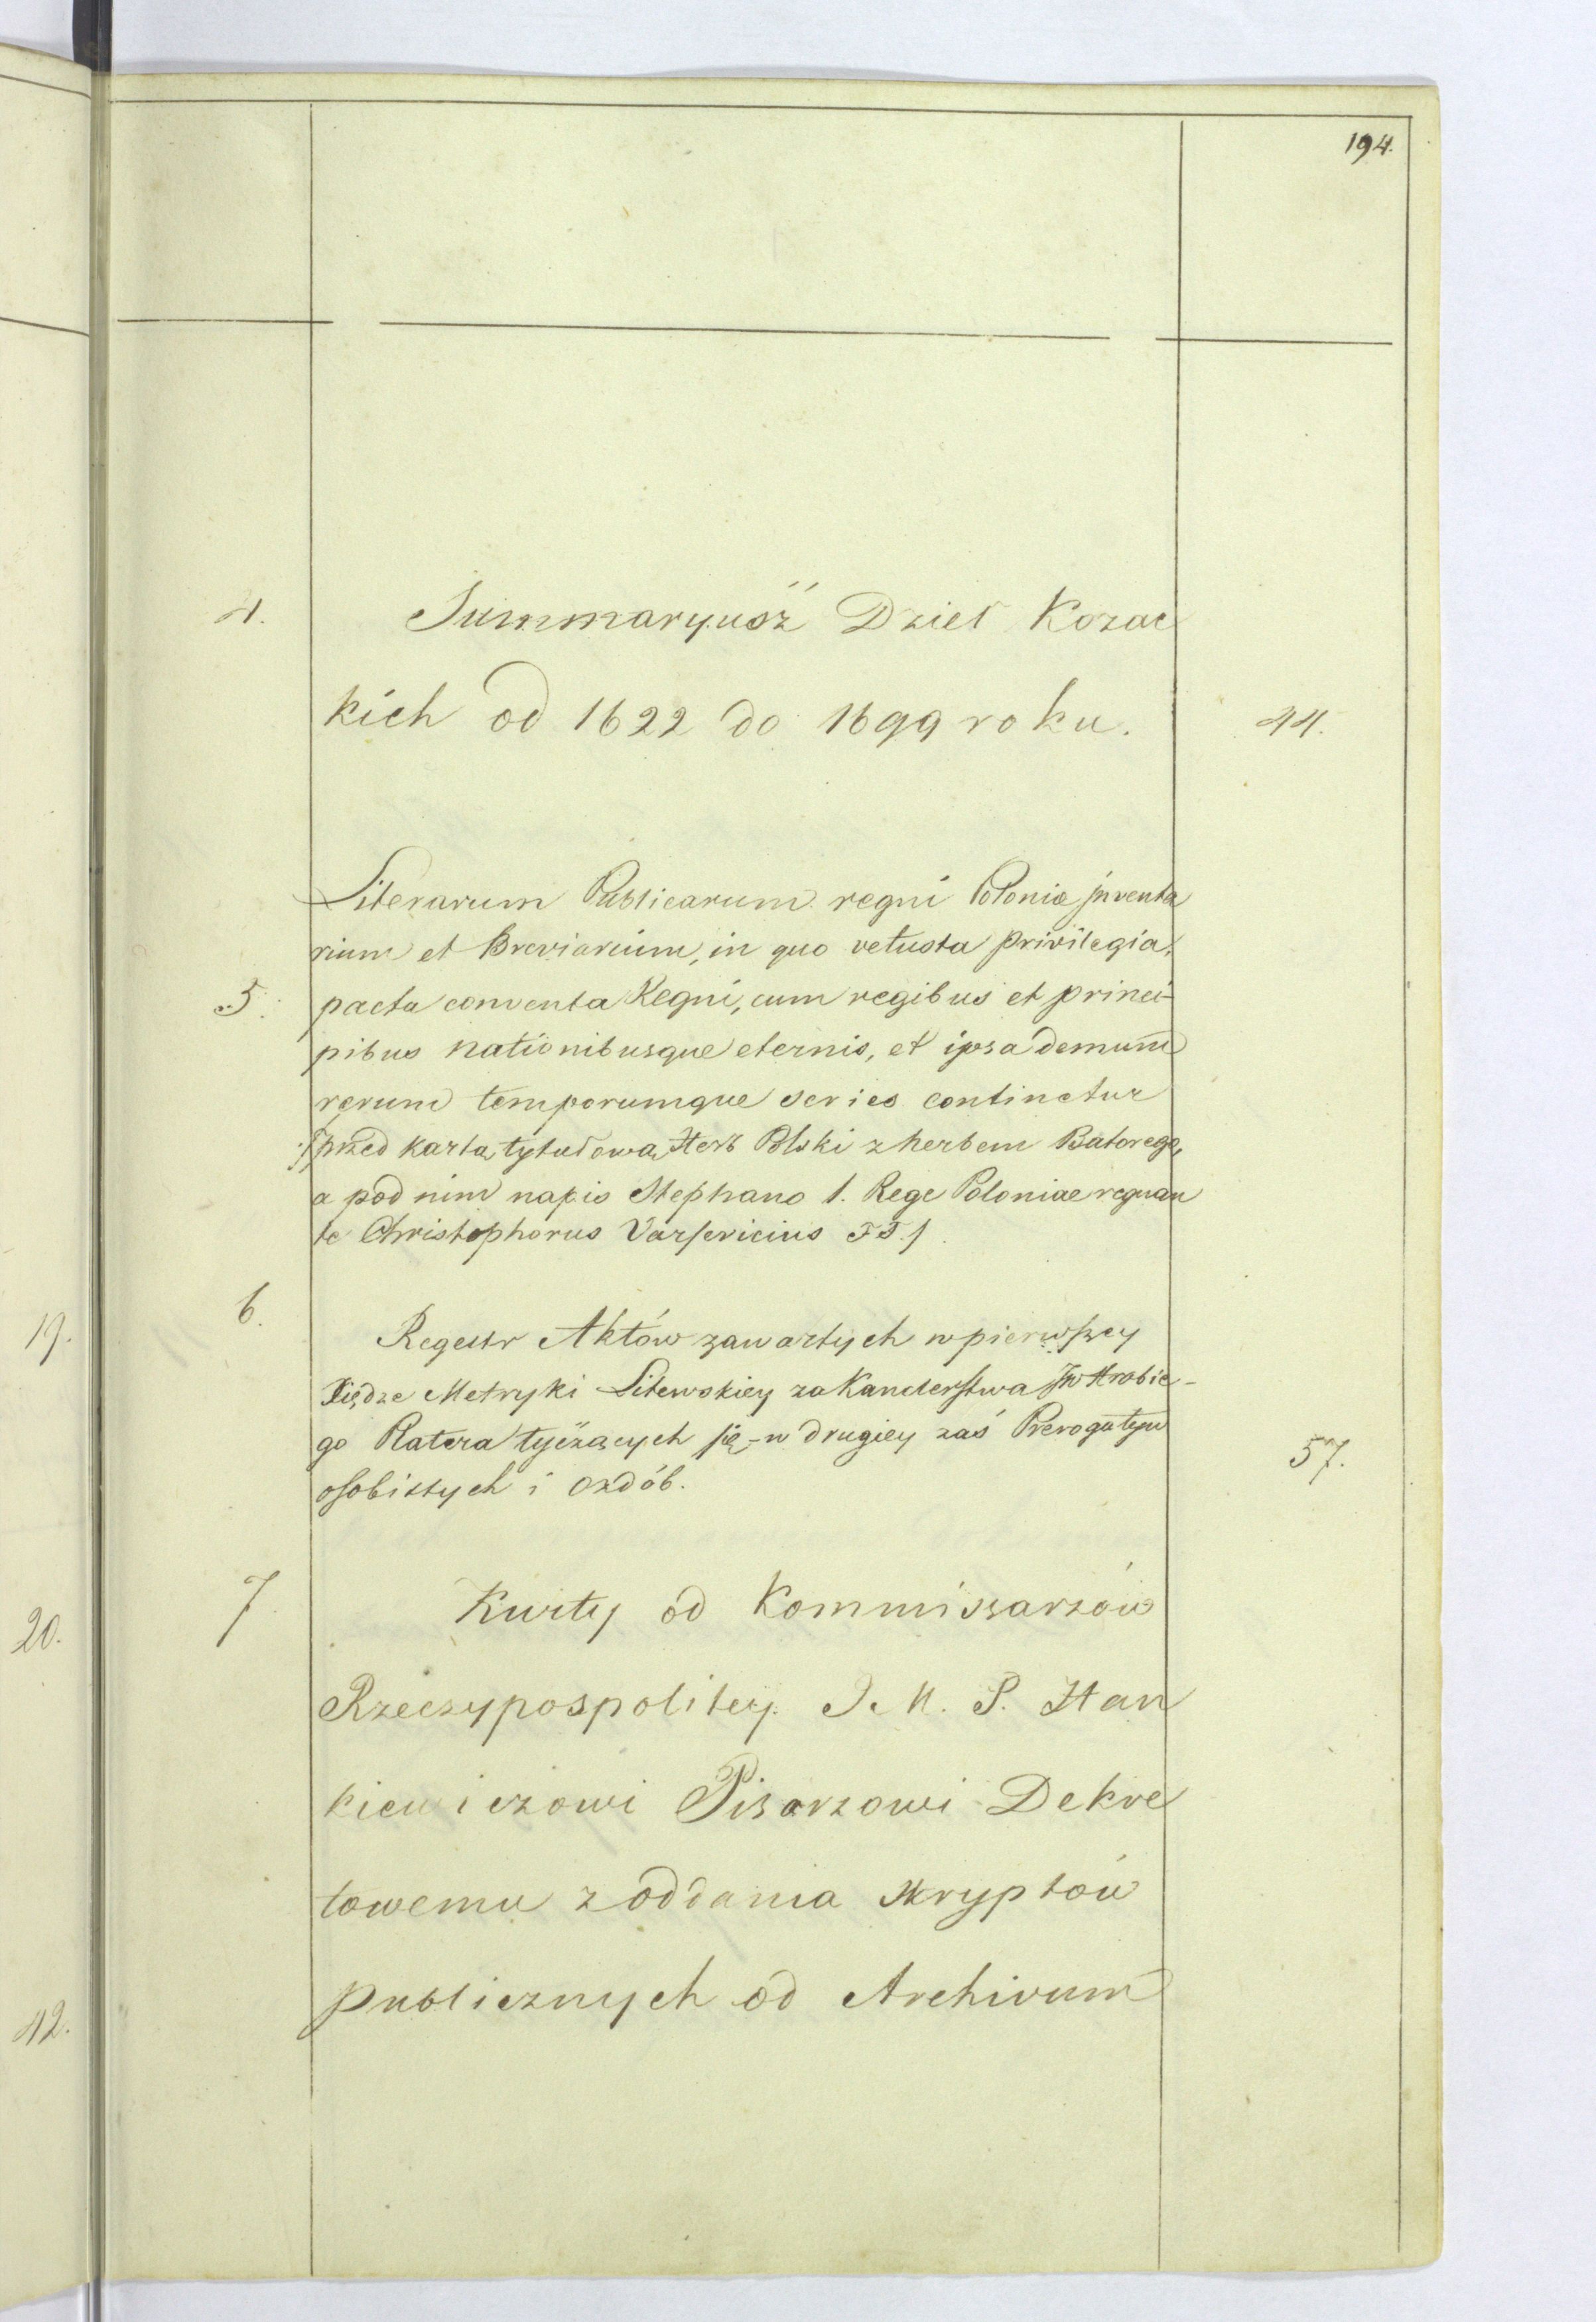 194.
4. Summaryusz Dzieł Kozac
kich od 1622 do 1699 roku. 44.
Literarum Publicarum regni Poloniæ inventa
rium et Breviarium, in quo vetusta privilegia,
5. pacta conventa Regni, cum regibus et princi-
pibus nationibusque eternis, et ipsa demum
rerum temporumque series continetur
/przed kartą tytułową Herb Polski z herbem Batorego,
a pod nim napis Stephano 1. Rege Poloniae regnan
te Christophorus Varsevicius FF./
6.
19.
Regestr Aktów zawartych w pierwszey
Xiędze Metryki Litewskiey za Kanclerstwa JW Hrabie-
go Platera tyczących się - w drugiey zaś Prerogatyw
57.
osobistych i ozdób.
7 Kwity od Kommissarzów
20.
Rzeczypospolitey J. M. P. Han
kiewiczowi Pisarzowi Dekre
towemu z oddania skryptów
publicznych od Archivum
12.